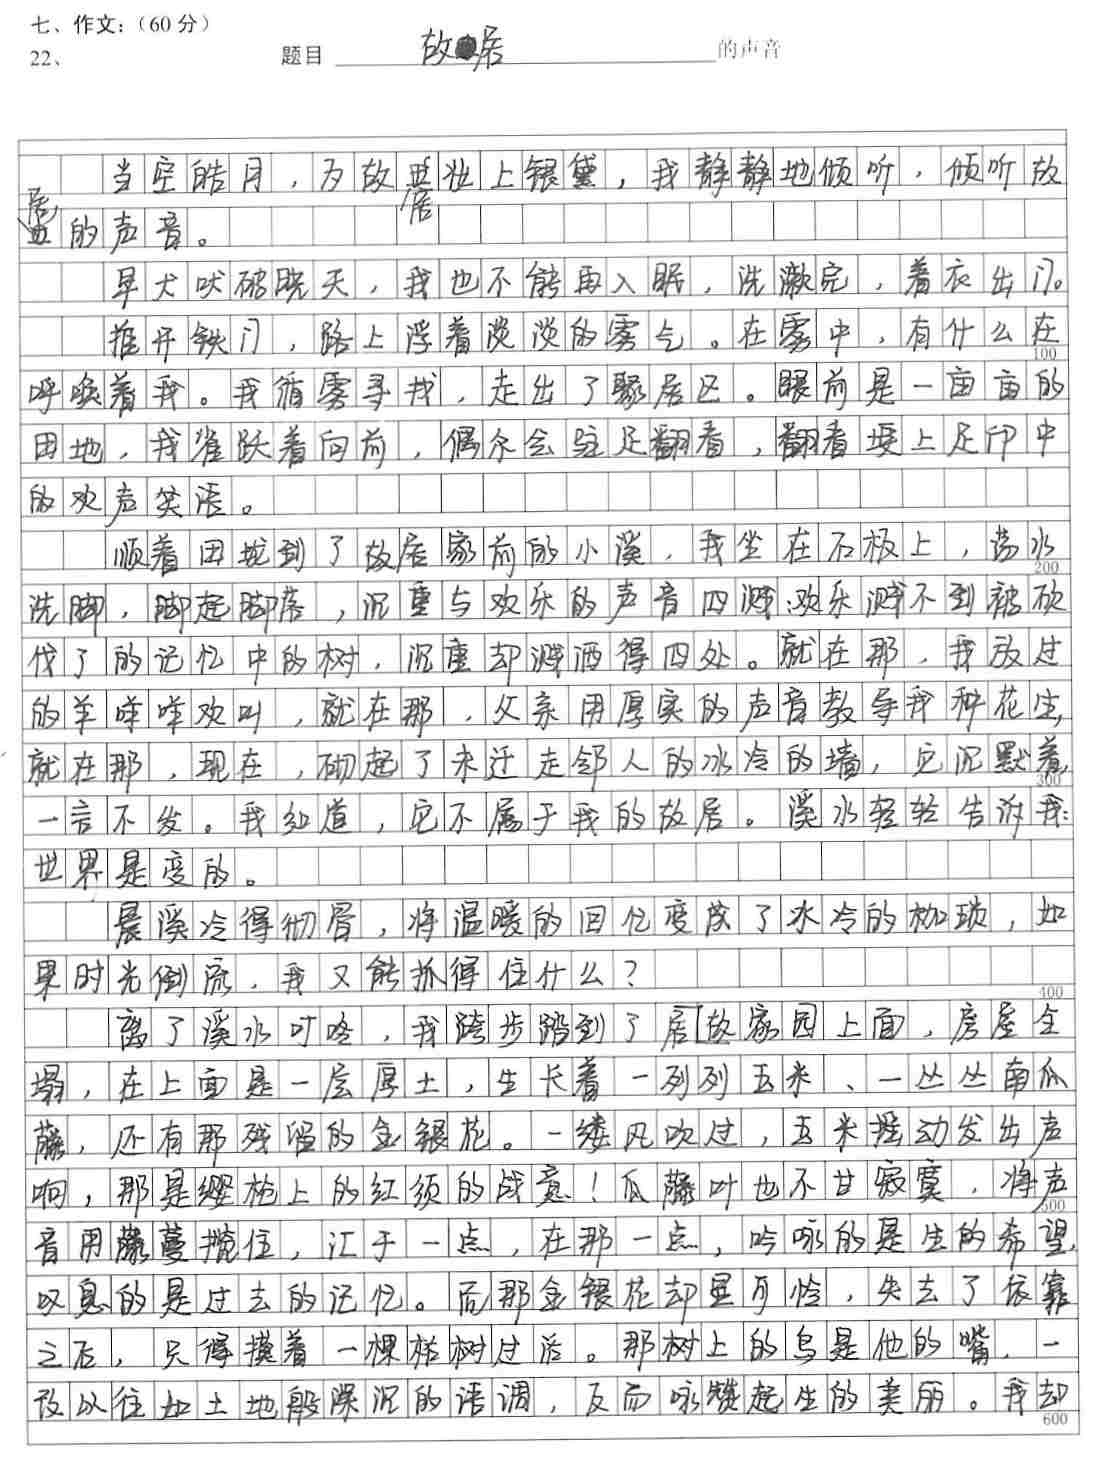 七、作文:（60分）
22、 题目 故居 的声音
当空皓月，为故居妆上银黛，我静静地倾听，倾听故
居的声音。
早犬吠破晓天，我也不能再入眠，洗漱完，着衣出门。
推开铁门，路上浮着淡淡的雾气。在雾中，有什么在
100
呼唤着我。我循雾寻找，走出了聚居区。眼前是一亩亩的
田地，我雀跃着向前，偶尔会驻足翻看，翻看埂上足印中
的欢声笑语。
顺着田拢到了故居家前的小溪，我坐在石板上，荡水
200
洗脚，脚起脚落，沉重与欢乐的声音四溅.欢乐溅不到被砍
伐了的记忆中的树，沉重却溅洒得四处。就在那，我放过
的羊咩咩欢叫，就在那，父亲用厚实的声音教导我种花生，
就在那，现在，砌起了未迁走邻人的冰冷的墙，它沉默着，
300
一言不发。我知道，它不属于我的故居。溪水轻轻告诉我：
世界是变的。
晨溪冷得彻骨，将温暖的回忆变成了冰冷的枷锁，如
果时光倒流，我又能抓得住什么？
400
离了溪水叮咚，我跨步踏到了居故家园上面，房屋全
塌，在上面是一层厚土，生长着一列列玉米、一丛丛南瓜
藤，还有那残留的金银花。一缕风吹过，玉米摇动发出声
响，那是缨枪上的红须的战意！瓜藤叶也不甘寂寞，将声
500
音用藤蔓揽住，汇于一点，在那一点，吟咏的是生的希望，
叹息的是过去的记忆。而那金银花却显可怜，失去了依靠
之后，只得摸着一棵桩树过活。那树上的鸟是他的嘴，一
改以往如土地般深沉的语调，反而咏赞起生的美丽。我却
600